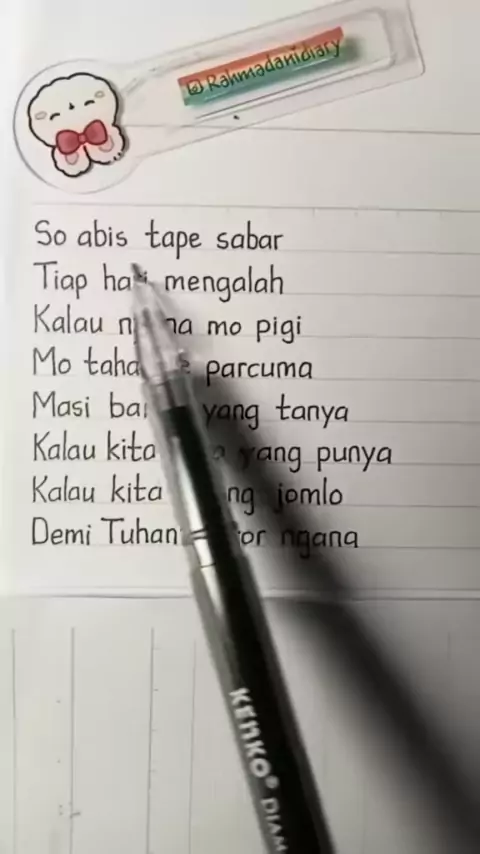 @Rahmadanidiary
So abis tape sabar
Tiap mengalah
Kalau mo pigi
Mo parcuma
Masi yang tanya
Kalau kita yang punya
Kalau kita jomlo
Demi Tuhan ngana
KENKO®